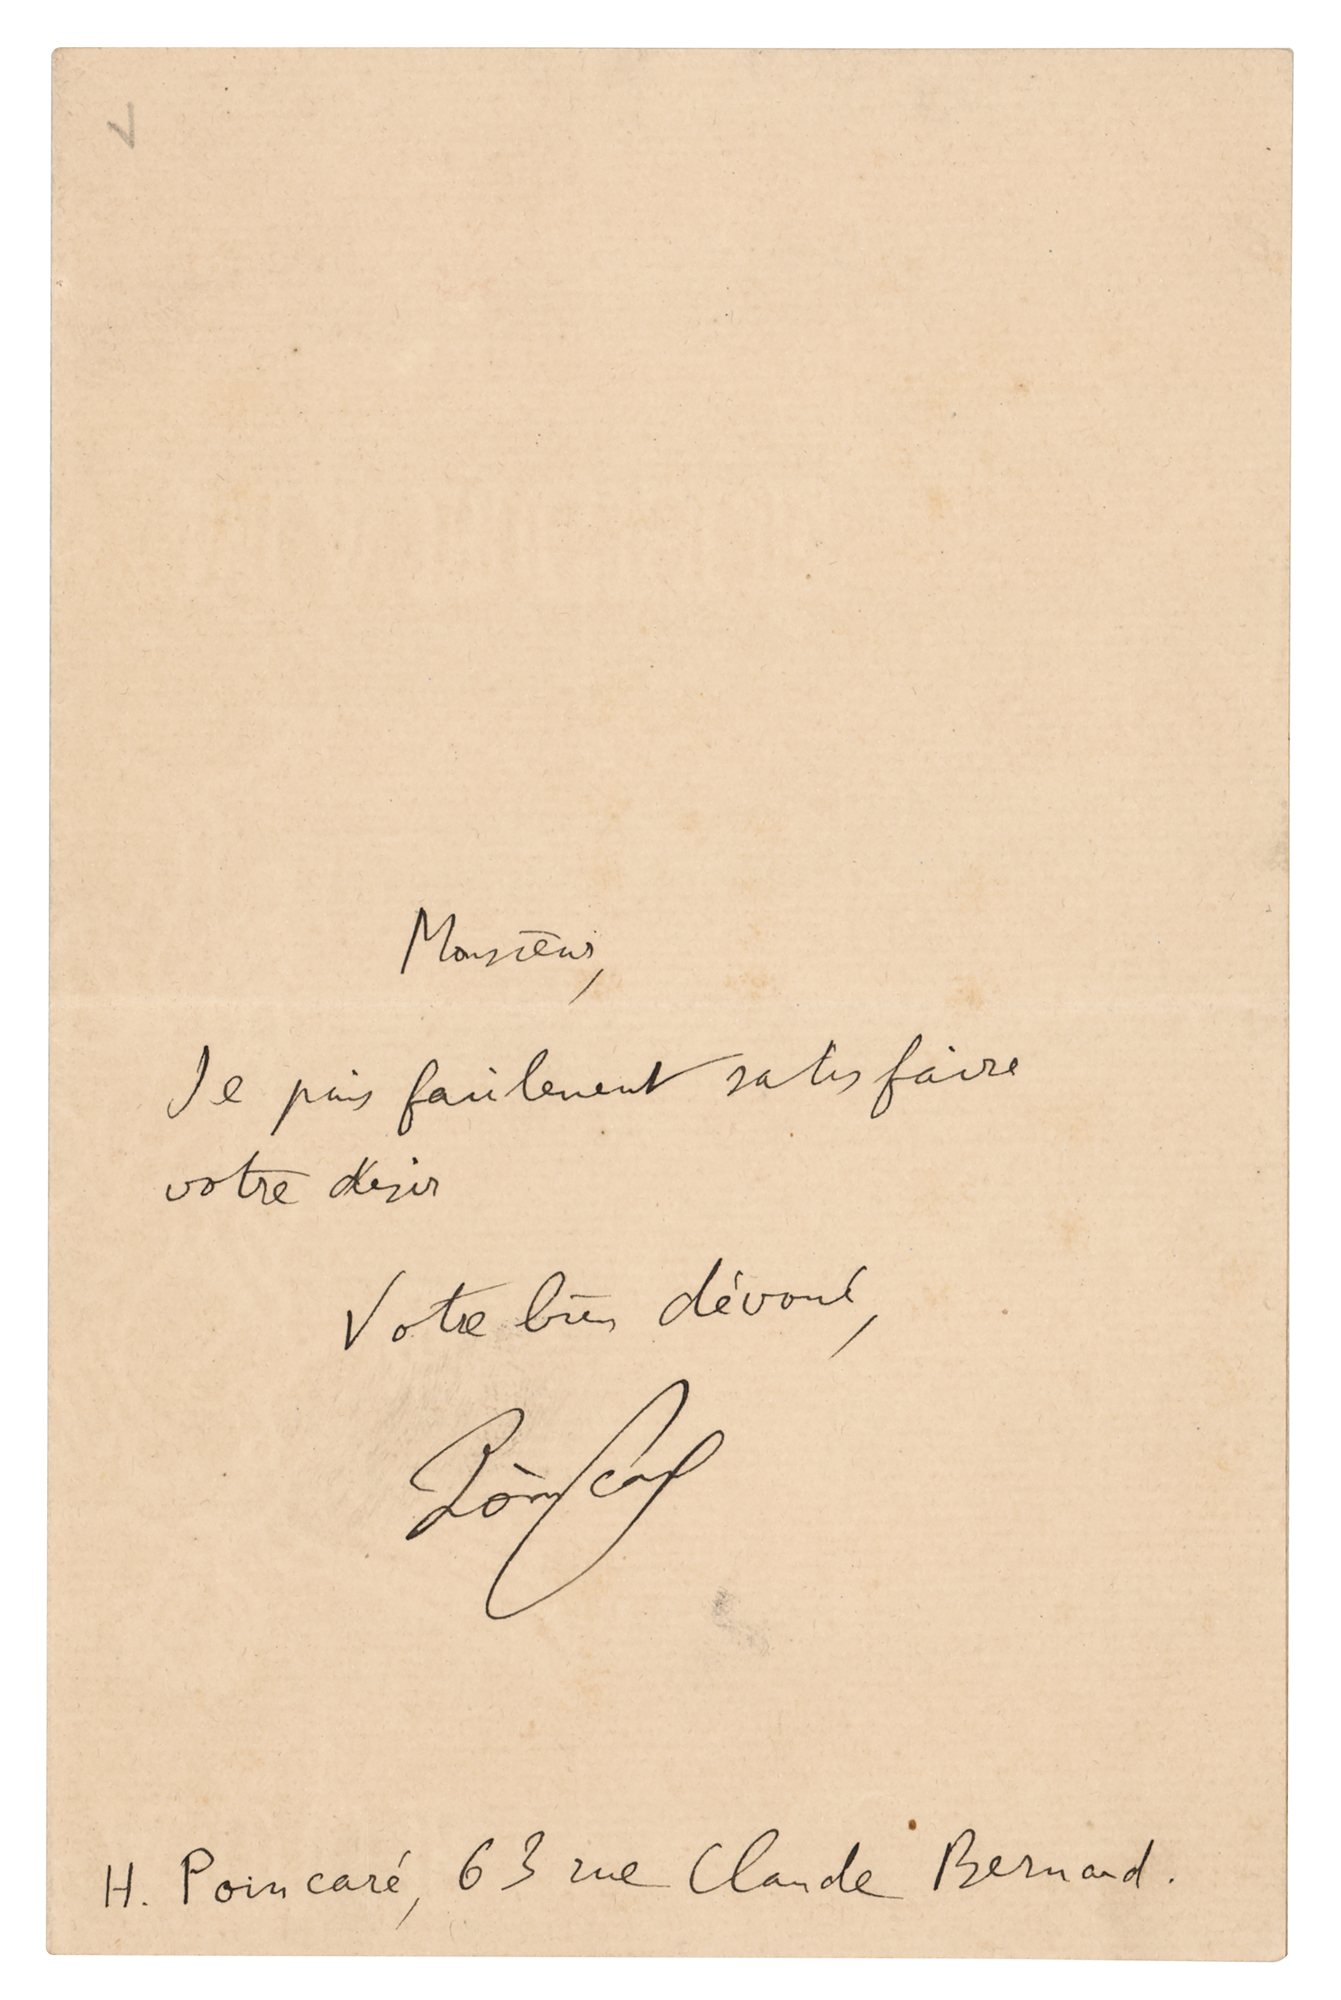 Monsieur,
Je puis facilement satisfaire
votre désir
Votre bien dévoué,
Poincaré
H. Poincaré, 63 rue Claude Bernard.